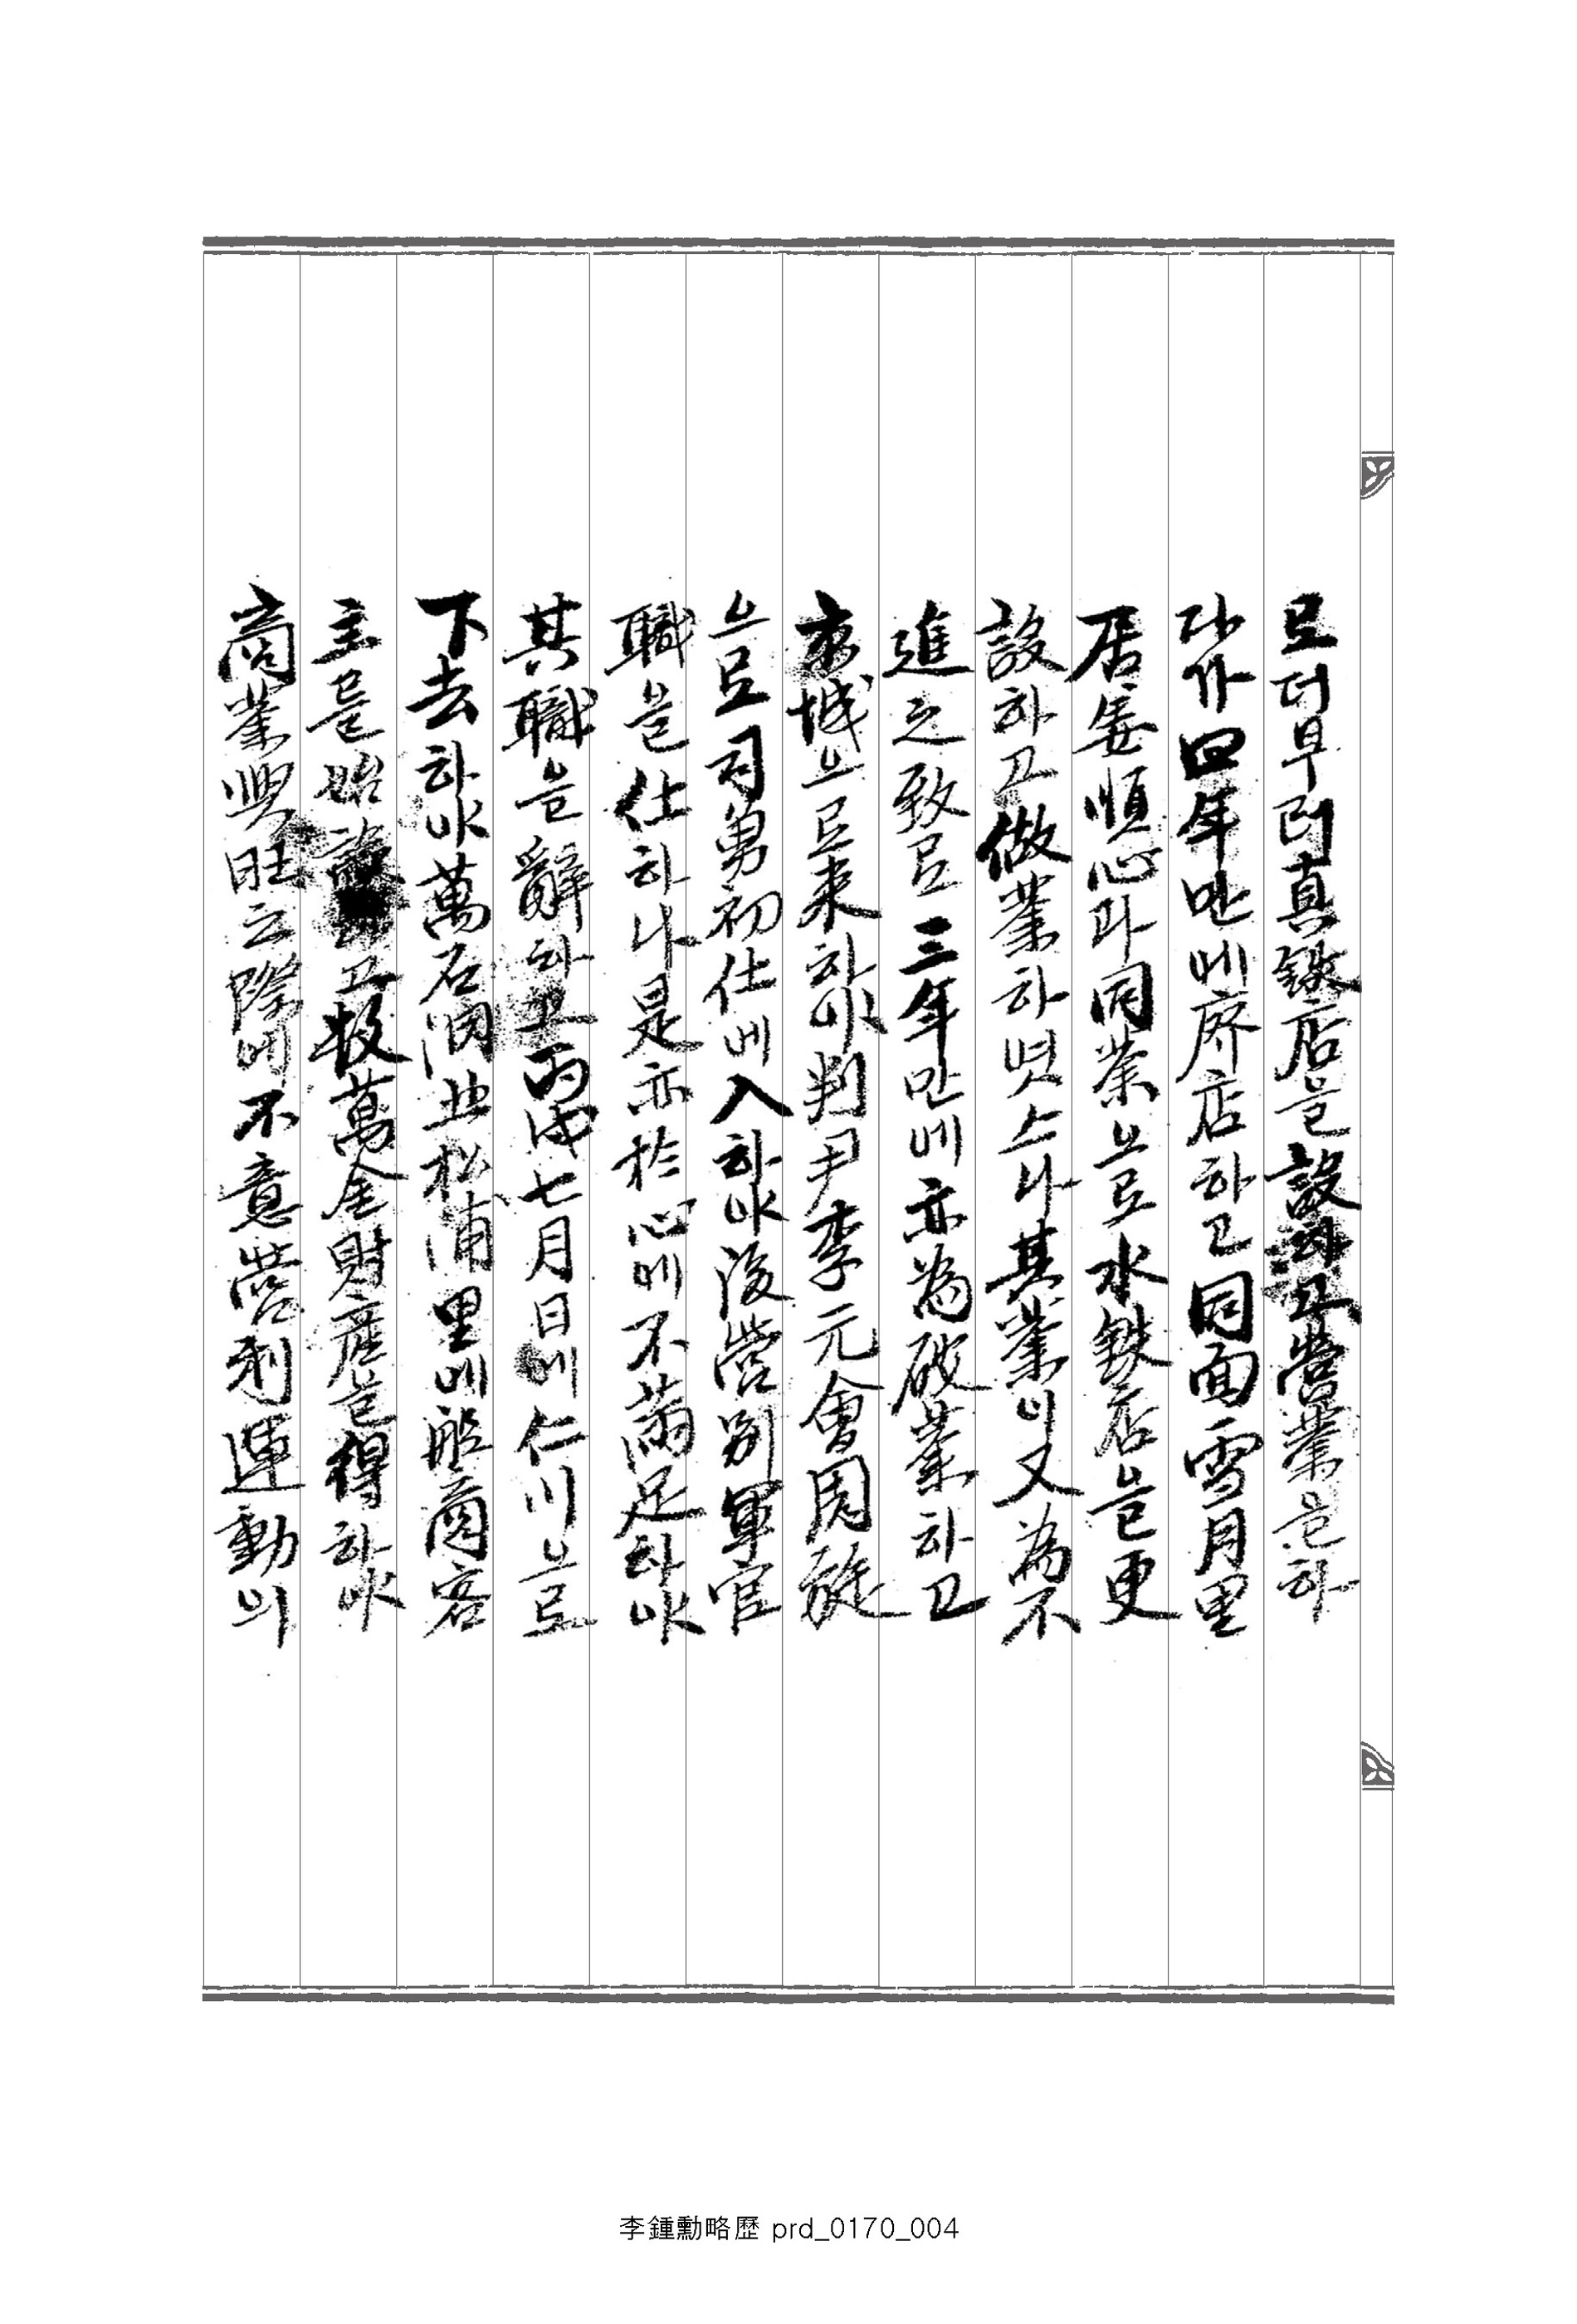 로더부러真鍮店을設하고營業을하
다가四年만에廃店하고同面雪月里
居姜順心과同業으로水鉄店을更
設하고做業하엿스나其業이又為不
進之致로三年만에亦為破業하고
京城으로来하야判尹李元會周旋
으로司勇初仕에入하야後營別軍官
職을仕하나是亦於心에不滿足하야
其職을辭하고丙戌七月日에仁川으로
下去하야萬石洞北松浦里에船商客
主를始設고数萬金財産을得하야
商業興旺之際에不意營利運動의
李鍾勳略歷 prd_0170_004